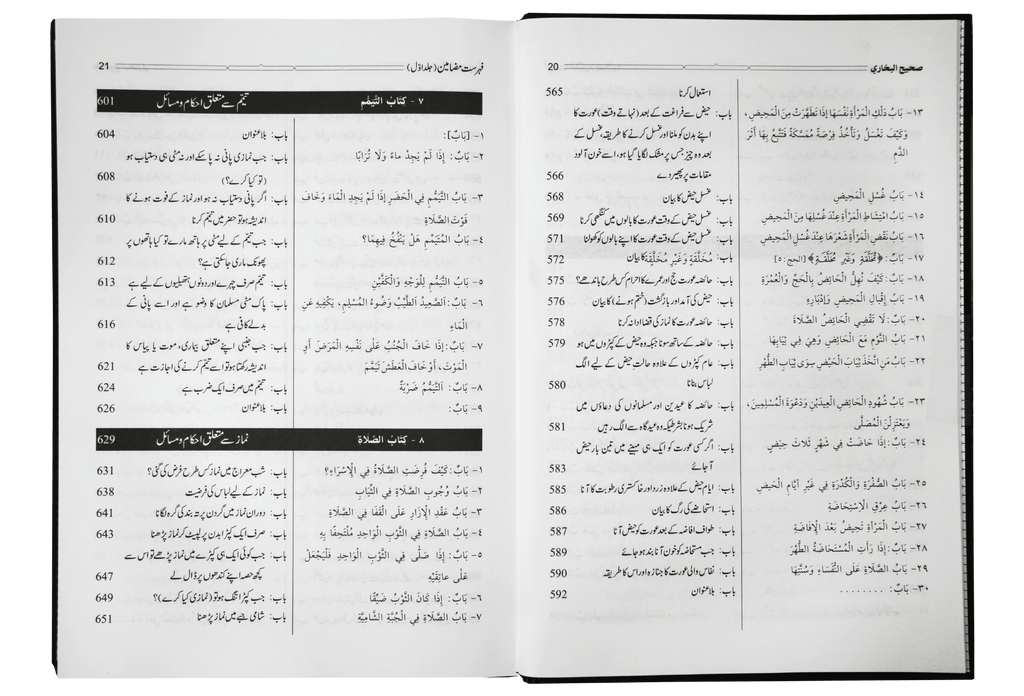 صحيح البخاري 20
استعمال کرنا 565
١٣- بَابُ دَلْكِ الْمَرْأَةِ نَفْسَهَا إِذَا تَطَهَّرَتْ مِنَ الْمَحِيضِ، باب: حیض سے فراغت کے بعد (نہاتے وقت) عورت کا
وَكَيْفَ تَغْتَسِلُ وَتَأْخُذُ فِرْصَةً مُمَسَّكَةً فَتَتَّبِعُ بِهَا أَثَرَ اپنے بدن کو ملنا اور غسل کرنے کا طریقہ، غسل کے
الدَّمِ بعد وہ چیز جس پر مشک لگایا گیا ہو، اسے خون آلود
مقامات پر پھیر دے 566
١٤- بَابُ غُسْلِ الْمَحِيضِ باب: غسل حیض کا بیان 568
١٥- بَابُ امْتِشَاطِ الْمَرْأَةِ عِنْدَ غُسْلِهَا مِنَ الْمَحِيضِ باب: غسل حیض کے وقت عورت کا بالوں میں کنگھی کرنا 569
١٦- بَابُ نَقْضِ الْمَرْأَةِ شَعْرَهَا عِنْدَ غُسْلِ الْمَحِيضِ باب: غسل حیض کے وقت عورت کا اپنے بالوں کو کھولنا 571
١٧- بَابٌ: ﴿مُخَلَّقَةٍ وَغَيْرِ مُخَلَّقَةٍ﴾ [الحج: ٥] باب: مُخَلَّقَةٍ وَغَيْرِ مُخَلَّقَةٍ کا بیان 572
١٨- بَابٌ: كَيْفَ تُهِلُّ الْحَائِضُ بِالْحَجِّ وَالْعُمْرَةِ باب: حائضہ عورت حج اور عمرے کا احرام کس طرح باندھے؟ 575
١٩- بَابُ إِقْبَالِ الْمَحِيضِ وَإِدْبَارِهِ باب: حیض کی آمد اور بازگشت (ختم ہونے) کا بیان 576
٢٠- بَابٌ: لَا تَقْضِي الْحَائِضُ الصَّلَاةَ باب: حائضہ عورت کا نماز کی قضا ادا نہ کرنا 578
٢١- بَابُ النَّوْمِ مَعَ الْحَائِضِ وَهِيَ فِي ثِيَابِهَا باب: حائضہ کے ساتھ سونا جبکہ وہ حیض کے کپڑوں میں ہو 579
٢٢- بَابُ مَنِ اتَّخَذَ ثِيَابَ الْحَيْضِ سِوَى ثِيَابِ الطُّهْرِ باب: عام کپڑوں کے علاوہ حالتِ حیض کے لیے الگ
لباس بنانا 580
٢٣- بَابُ شُهُودِ الْحَائِضِ الْعِيدَيْنِ وَدَعْوَةَ الْمُسْلِمِينَ، باب: حائضہ کا عیدین اور مسلمانوں کی دعاؤں میں
وَيَعْتَزِلْنَ الْمُصَلَّى شریک ہونا بشرطیکہ وہ عیدگاہ سے الگ رہیں 581
٢٤- بَابٌ: إِذَا حَاضَتْ فِي شَهْرٍ ثَلَاثَ حِيَضٍ باب: اگر کسی عورت کو ایک ہی مہینے میں تین بار حیض
آجائے 583
٢٥- بَابُ الصُّفْرَةِ وَالْكُدْرَةِ فِي غَيْرِ أَيَّامِ الْحَيْضِ باب: ایام حیض کے علاوہ زرد اور خاکستری رطوبت کا آنا 585
٢٦- بَابُ عِرْقِ الْاِسْتِحَاضَةِ باب: استحاضے کی رگ کا بیان 586
٢٧- بَابُ الْمَرْأَةِ تَحِيضُ بَعْدَ الْإِفَاضَةِ باب: طواف افاضہ کے بعد عورت کو حیض آنا 587
٢٨- بَابٌ: إِذَا رَأَتِ الْمُسْتَحَاضَةُ الطُّهْرَ باب: جب مستحاضہ کو خون آنا بند ہو جائے 589
٢٩- بَابُ الصَّلَاةِ عَلَى النُّفَسَاءِ وَسُنَّتِهَا باب: نفاس والی عورت کا جنازہ اور اس کا طریقہ 590
٣٠- بَابٌ: ........ باب: بلاعنوان 592
فہرست مضامین (جلد اوّل) 21
٧ - كتاب التيمم تیمّم سے متعلق احکام و مسائل 601
١- [بَابٌ]: باب: بلاعنوان 604
٢- بَابٌ: إِذَا لَمْ يَجِدْ مَاءً وَلَا تُرَابًا باب: جب نمازی پانی نہ پا سکے اور نہ مٹی ہی دستیاب ہو
(تو کیا کرے؟) 608
٣- بَابُ التَّيَمُّمِ فِي الْحَضَرِ إِذَا لَمْ يَجِدِ الْمَاءَ وَخَافَ باب: اگر پانی دستیاب نہ ہو اور نماز کے فوت ہونے کا
فَوْتَ الصَّلَاةِ اندیشہ ہو تو حضر میں تیمّم کرنا 610
٤- بَابُ الْمُتَيَمِّمِ هَلْ يَنْفُخُ فِيهِمَا؟ باب: جب تیمّم کے لیے مٹی پر ہاتھ مارے تو کیا ہاتھوں پر
پھونک ماری جا سکتی ہے؟ 612
٥- بَابُ التَّيَمُّمِ لِلْوَجْهِ وَالْكَفَّيْنِ باب: تیمّم صرف چہرے اور دونوں ہتھیلیوں کے لیے ہے 613
٦- بَابٌ: اَلصَّعِيدُ الطَّيِّبُ وَضُوءُ الْمُسْلِمِ، يَكْفِيهِ عَنِ باب: پاک مٹی مسلمان کا وضو ہے اور اسے پانی کے
الْمَاءِ بدلے کافی ہے 616
٧- بَابٌ: إِذَا خَافَ الْجُنُبُ عَلَى نَفْسِهِ الْمَرَضَ أَوِ باب: جب جنبی اپنے متعلق بیماری، موت یا پیاس کا
الْمَوْتَ، أَوْ خَافَ الْعَطَشَ تَيَمَّمَ اندیشہ رکھتا ہو تو اسے تیمّم کرنے کی اجازت ہے 621
٨- بَابٌ: اَلتَّيَمُّمُ ضَرْبَةٌ باب: تیمّم میں صرف ایک ضرب ہے 624
٩- بَابٌ: باب: بلاعنوان 626
٨ - كتاب الصلاة نماز سے متعلق احکام و مسائل 629
١- بَابٌ: كَيْفَ فُرِضَتِ الصَّلَاةُ فِي الْإِسْرَاءِ؟ باب: شب معراج میں نماز کس طرح فرض کی گئی؟ 631
٢- بَابُ وُجُوبِ الصَّلَاةِ فِي الثِّيَابِ باب: نماز کے لیے لباس کی فرضیت 638
٣- بَابُ عَقْدِ الْإِزَارِ عَلَى الْقَفَا فِي الصَّلَاةِ باب: دوران نماز میں گردن پر تہ بند کی گرہ لگانا 641
٤- بَابُ الصَّلَاةِ فِي الثَّوْبِ الْوَاحِدِ مُلْتَحِفًا بِهِ باب: صرف ایک کپڑا بدن پر لپیٹ کر نماز پڑھنا 643
٥- بَابٌ: إِذَا صَلَّى فِي الثَّوْبِ الْوَاحِدِ فَلْيَجْعَلْ باب: جب کوئی ایک ہی کپڑے میں نماز پڑھے تو اس سے
عَلَى عَاتِقَيْهِ کچھ حصہ اپنے کندھوں پر ڈال لے 647
٦- بَابٌ: إِذَا كَانَ الثَّوْبُ ضَيِّقًا باب: جب کپڑا تنگ ہو تو (نمازی کیا کرے)؟ 649
٧- بَابُ الصَّلَاةِ فِي الْجُبَّةِ الشَّامِيَّةِ باب: شامی جبے میں نماز پڑھنا 651